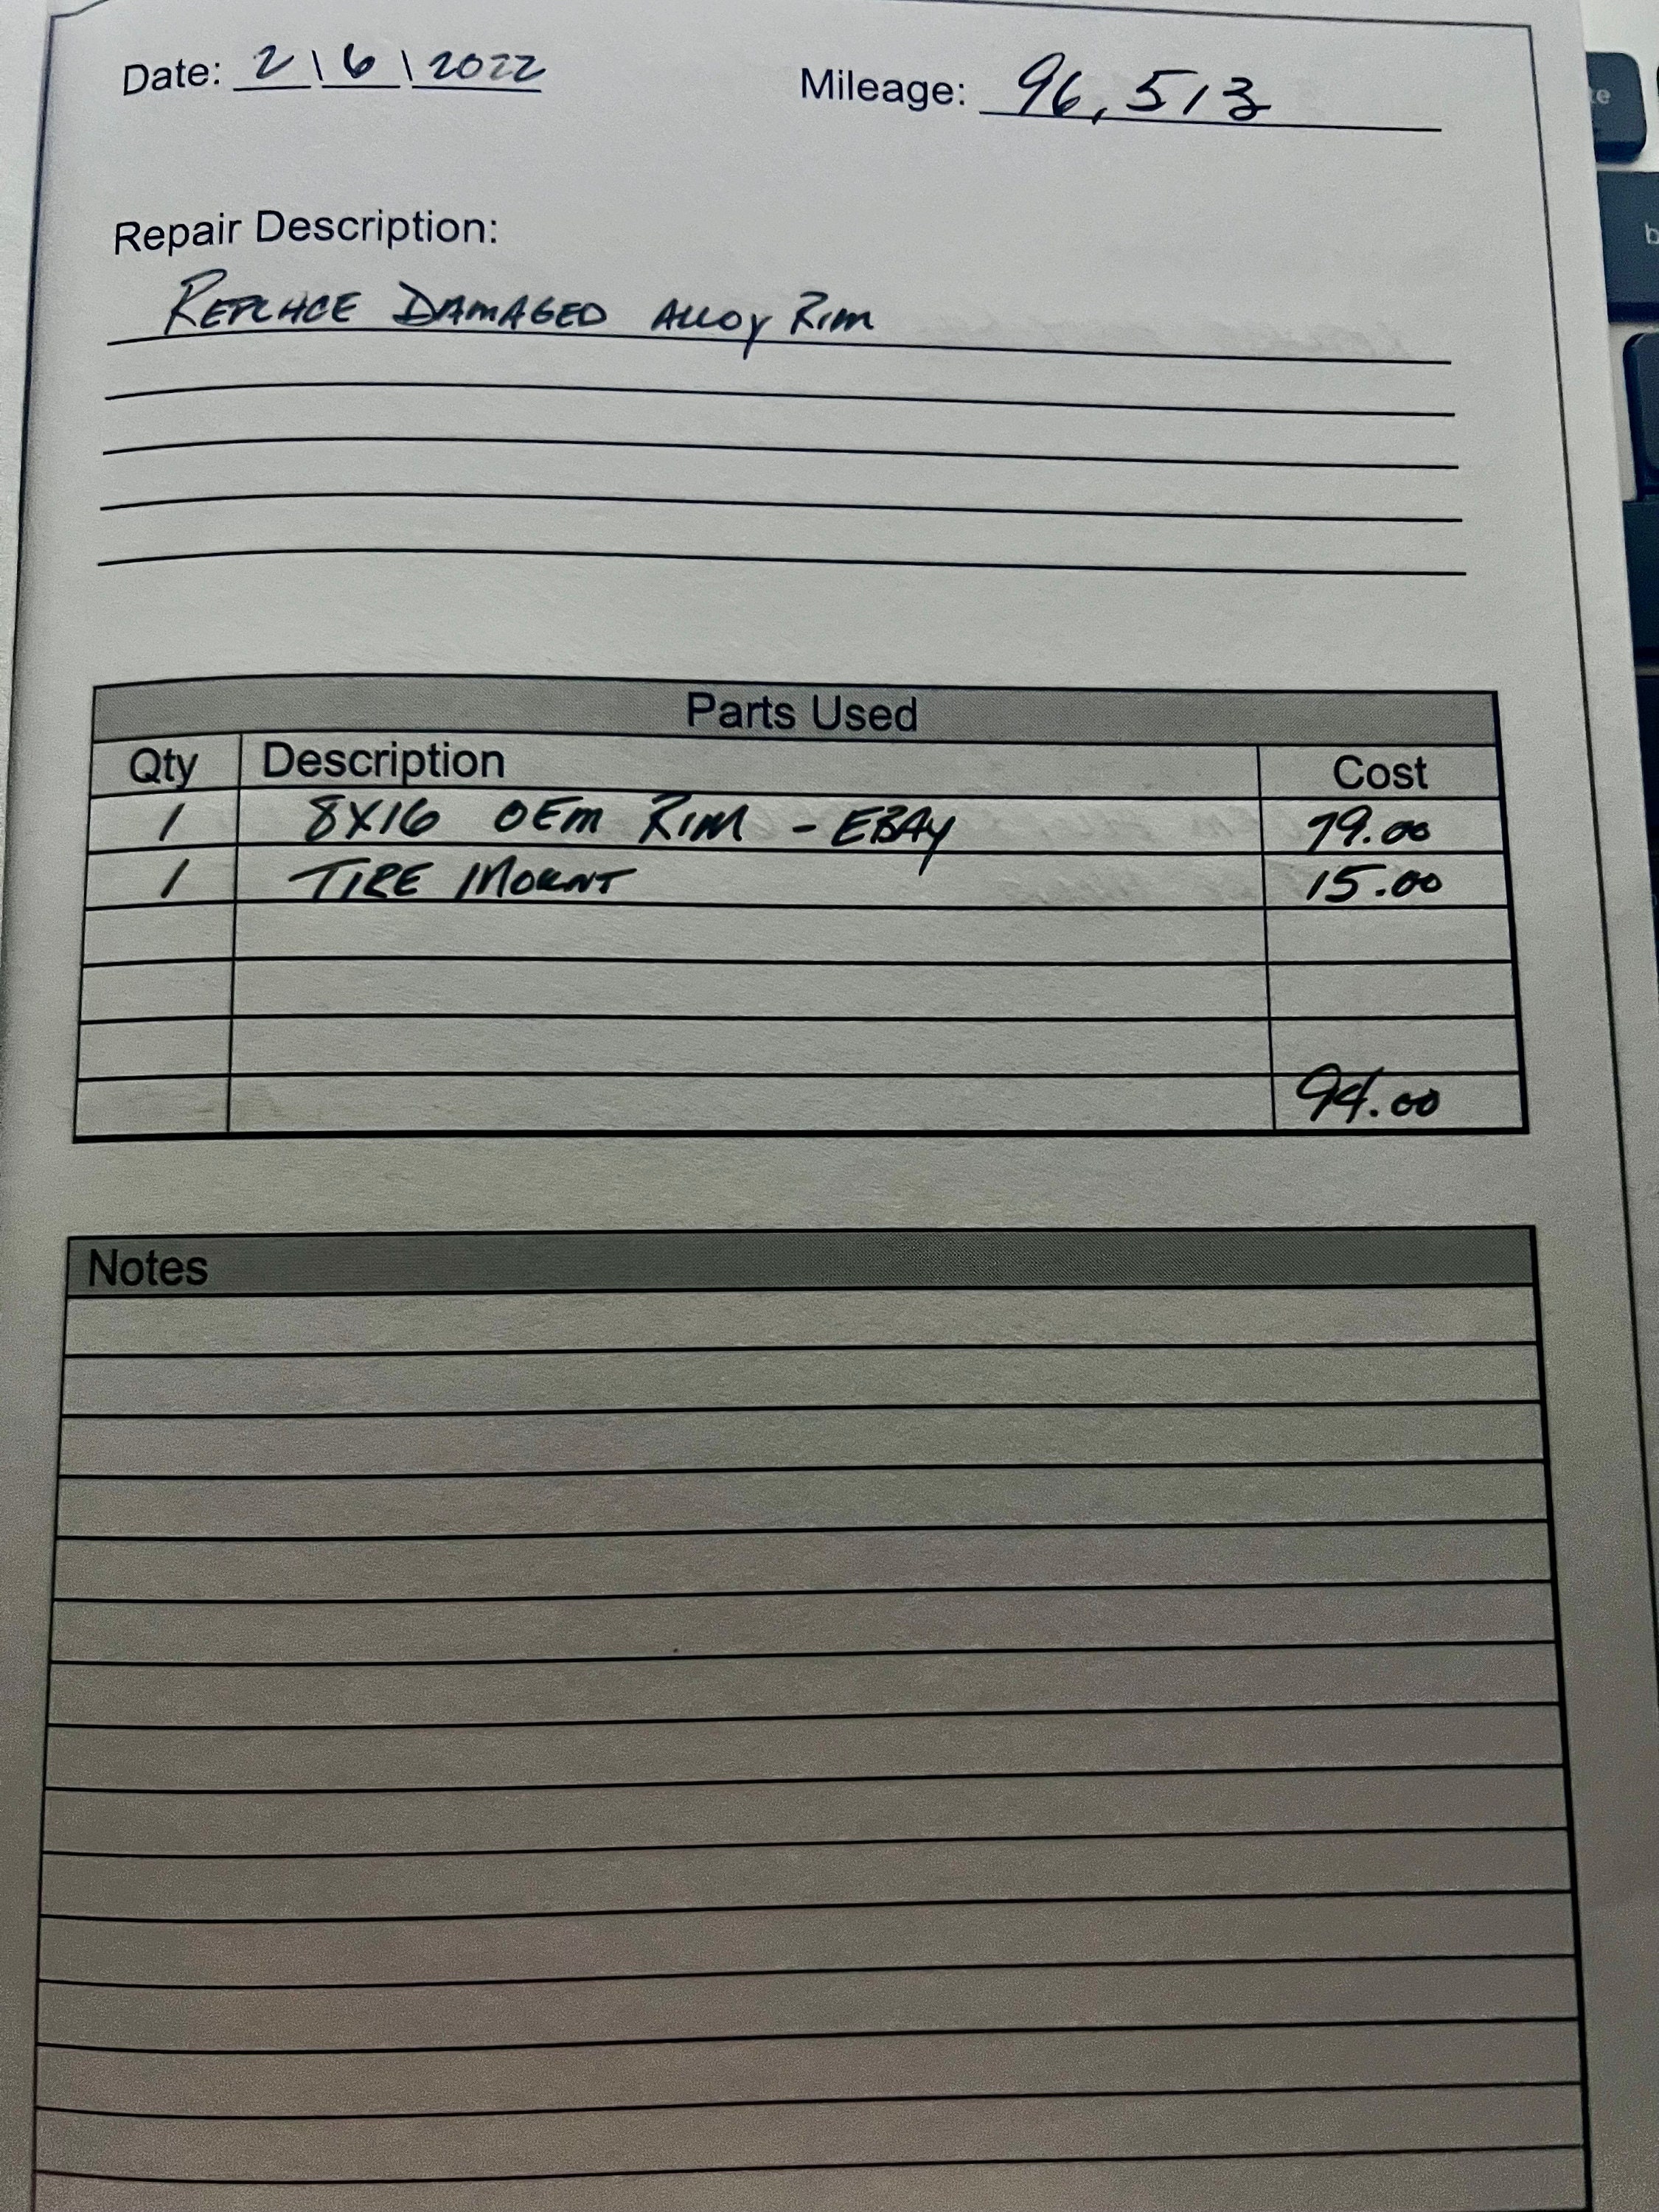 Date: 2\6\2022 Mileage: 96,513
Repair Description:
REPLACE DAMAGED ALLOY RIM
Parts Used
Qty Description Cost
1 8X16 OEM RIM - EBAY 79.00
1 TIRE MOUNT 15.00
94.00
Notes